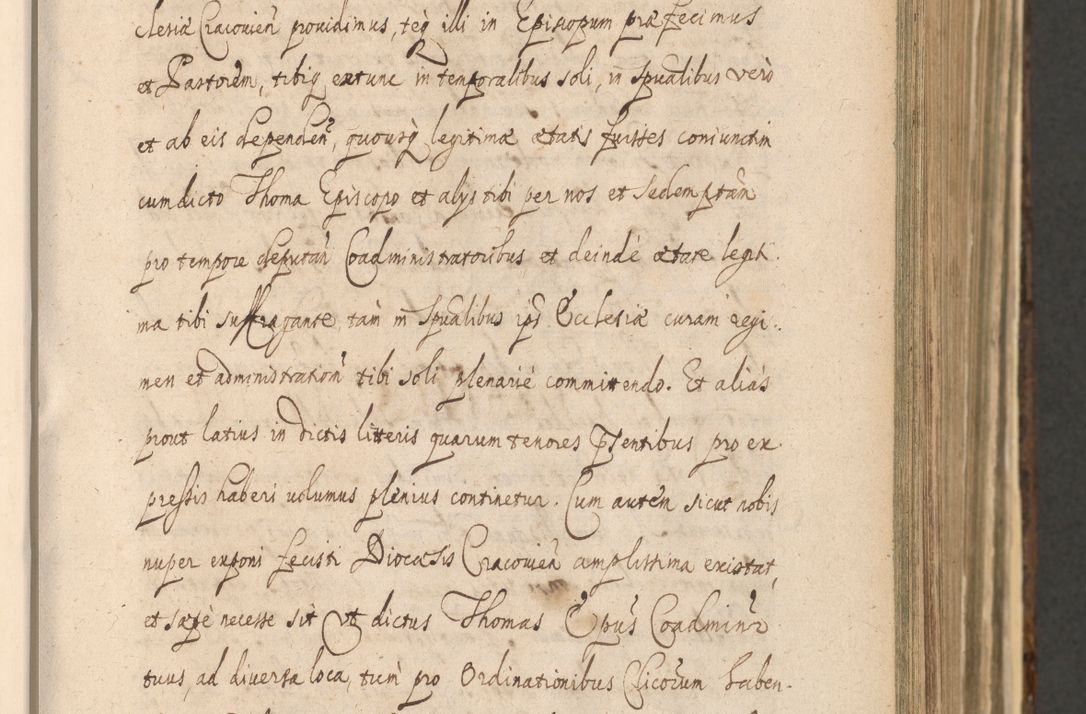 clesiæ Cracouien̄ prouidimus, teq̨ illi in Episcopum præfecimus
et Pastorem, tibiq̨ extunc in temporalibus soli, in spūalibus verò
et ab eis dependen̄, quousq̨ legitimæ ætatis fuisses coniunctim
cum dicto Thoma Episcopo et alys tibi per nos et Sedem p̄tām
pro tempore deputān Coadministratoribus et deindè ætate legit-
ima tibi suffragante, tam in Spūalibus ips̄ Ecclesiæ curam regi-
men et administration̄ tibi soli plenariè committendo. Et aliàs
prout latius in dictis litteris quarum tenores p̄sentibus pro ex-
pressis haberi uolumus plenius continetur. Cum autem sicut nobis
nuper exponi fecisti Diocæsis Cracouien̄ amplissima existat,
et sæpè necesse sit vt dictus Thomas Ep̄us Coadminr̄
tuus, ad diuersa loca, tum pro Ordinationibus Clicorum haben-